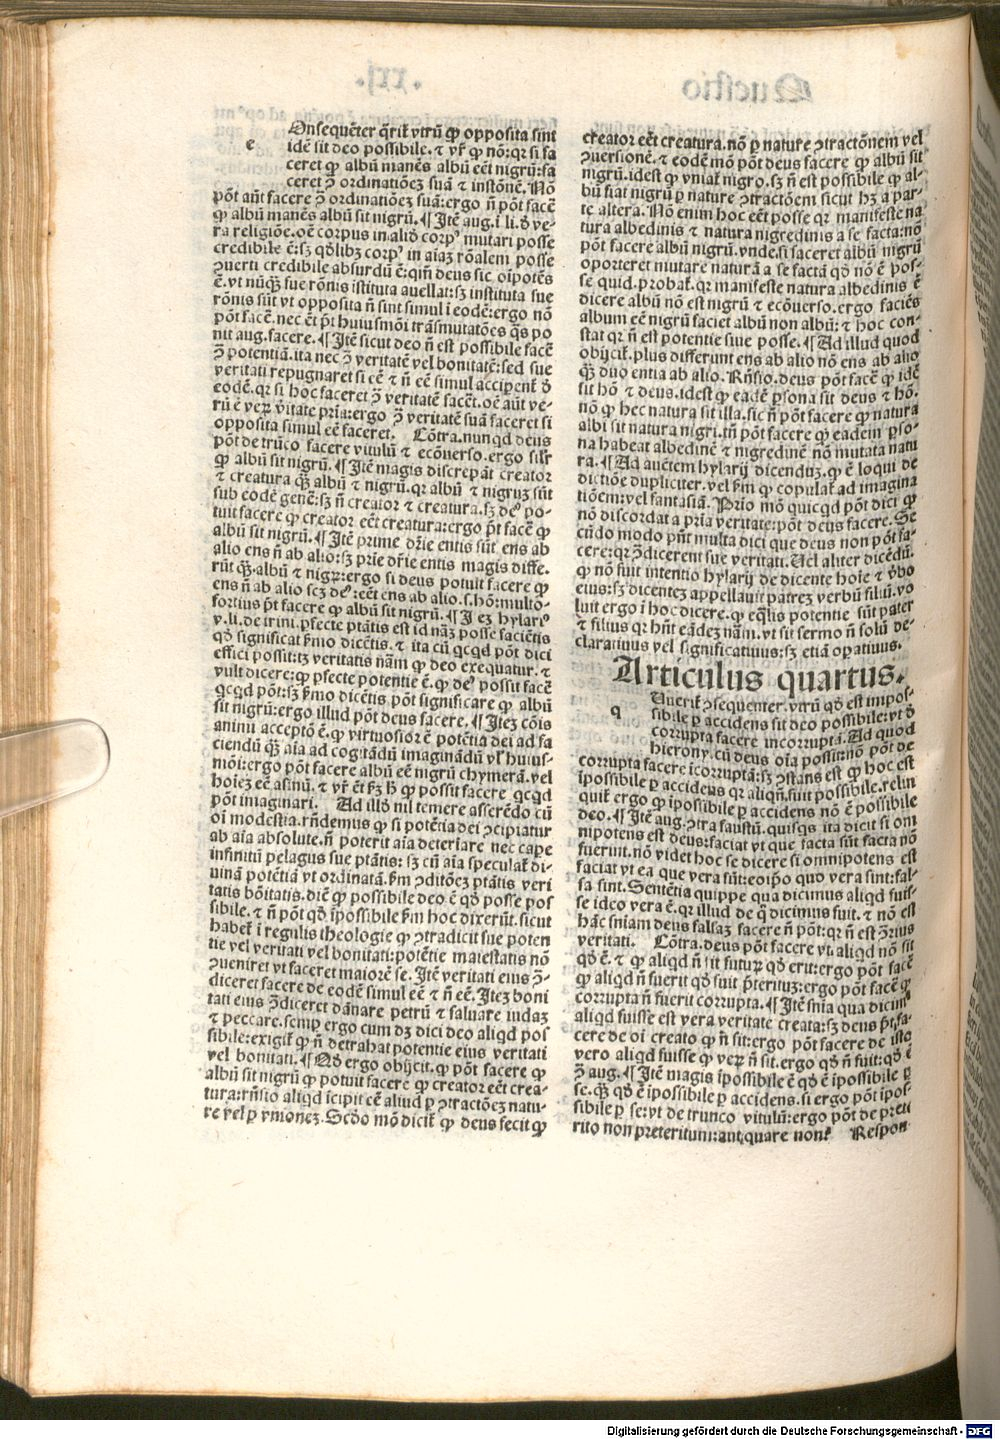 Onsequēter q̄rit̄ vtrū ꝙ opposita sint
e
idē sit deo possibile. ⁊ vr̄ ꝙ nō: qr si fa
ceret ꝙ albū manēs albū eēt nigrū: fa
ceret ꝯ ordinatiōeꝫ suā ⁊ instōnē. Nō
pōt aūt facere ꝯ ordinatiōeꝫ suā: ergo n̄ pōt facē
ꝙ albū manēs albū sit nigrū. ¶ Itē aug. ī li. ꝺ ve-
ra religiōe. oē corpus in aliꝺ corpꝰ mutari posse
credibile ē: sꝫ qꝺlibꝫ corpꝰ in aīaꝫ rōalem posse
ꝯuerti credibile absurdū ē: qm̄ deus sic oīpotēs
ē. vt nūꝗ sue rōnis īstituta auellat: sꝫ instituta sue
rōnis sūt vt opposita n̄ sint simul ī eodē: ergo nō
pōt facē. nec ēt p̄t huiusmōi trāsmutatōes q̄s po
nit aug. facere. ¶ Itē sicut deo n̄ est possibile facē
ꝯ potentiā. ita nec ꝯ veritatē vel bonitatē: sed sue
veritati repugnaret si eē ⁊ n̄ eē simul acciperet̄ ꝺ
eodē. qr si hoc faceret ꝯ veritatē facēt. oē aūt ve-
rū ē veꝝ v̄itate prīa: ergo ꝯ veritatē suā faceret si
opposita simul eē faceret. Cōtra. nunqd deus
pōt de trūco facere vitulū ⁊ ecōuerso. ergo silr̄
ꝙ albū sit nigrū. ¶ Itē magis discrepāt creator
⁊ creatura ꝗ̄ albū ⁊ nigrū. qr albū ⁊ nigruꝫ sūt
sub eodē genē: sꝫ n̄ creator ⁊ creatura. sꝫ deꝰ po-
tuit facere ꝙ creator eēt creatura: ergo p̄t facē ꝙ
albū sit nigrū. ¶ Itē prime dr̄ie entis sūt ens ab
alio ens n̄ ab alio: sꝫ prīe dr̄ie entis magis diffe.
rūt ꝗ̄. albū ⁊ nigꝝ: ergo si deus potuit facere ꝙ
ens n̄ ab alio scꝫ deꝰ: eēt ens ab alio. s. hō: multo-
fortius p̄t facere ꝙ albū sit nigrū. ¶ Jeꝫ hylariꝰ
v. li. de trini. ꝑfecte ptātis est id nāꝫ posse faciētis
qꝺ significat ẜmo dicētis. ⁊ ita cū qcqd pōt dici
effici possit: tꝫ veritatis nāꝫ ꝙ deo exequatur. ⁊
vult dicere: ꝙ ꝑfecte potentie ē. ꝙ deꝰ possit facē
qcqd pōt: sꝫ ẜmo dicētis pōt significare ꝙ albū
sit nigrū: ergo illud pōt deus facere. ¶ Iteꝫ cōis
animi acceptō ē. ꝙ virtuosior ē potētia dei ad fa
ciendū ꝗ̄ aīa ad cogitādū imaginādū vl̄ huius-
mōi: ergo pōt facere albū eē nigrū chymerā. vel
hoīeꝫ eē asinū. ⁊ vr̄ ēt ẜꝫ h̄ ꝙ possit facere qcqd
pōt imaginari. Ad illꝺ nil temere asserēdo cū
oī modestia. rn̄demus ꝙ si potētia dei ꝯcipiatur
ab aīa absolute. n̄ poterit aīa determare nec cape
infinitū pelagus sue ptātis: sꝫ cū aīa speculat̄ di-
uinā potētiā vt ordinatā. ẜm ꝯditōeꝫ ptātis veri
tatis bōitatis. dic̄t ꝙ possibile deo ē qꝺ posse pos
sibile. ⁊ n̄ pōt qꝺ īpossibile ẜm hoc dixerūt. sicut
habet̄ ī regulis theologie ꝙ ꝯtradicit sue poten
tie vel veritati vel bonitati: potētie maiestatis nō
ꝯueniret vt faceret maiorē se. Itē veritati eius ꝯ-
diceret facere de eodē simul eē ⁊ n̄ eē. Iteꝫ boni
tati eius ꝯdiceret dānare petrū ⁊ saluare iudaꝫ
⁊ peccare. semꝑ ergo cum dꝫ dici deo aliqd pos
sibile: exigit̄ ꝙ n̄ detrahat potentie eius veritati
vel bonitati. ¶ Qꝺ ergo obijcit. ꝙ pōt facere ꝙ
albū sit nigrū ꝙ potuit facere ꝙ creator eēt crea-
tura: rn̄sio aliqd īcipit eē aliud ꝑ ꝯtractōeꝫ natu-
re vel ꝑ vnioneꝫ. Scꝺo mō dicit̄ ꝙ deus fecit ꝙ
creator eēt creatura. nō ꝑ nature ꝯtractōnem vel
ꝯuersionē. ⁊ eodē mō pōt deus facere ꝙ albū sit
nigrū. idest ꝙ vniat̄ nigro. sꝫ n̄ est possibile ꝙ al-
bū fiat nigrū ꝑ nature ꝯtractōem sicut hꝫ a par-
te altera. Nō enim hoc eēt posse qr manifeste na
tura albedinis ⁊ natura nigredinis a se facta: nō
pōt facere albū nigrū. vnde. si faceret albū nigrū
oporteret mutare naturā a se factā qꝺ nō ē pos-
se quid. probat̄. qr manifeste natura albedinis ē
dicere albū nō est nigrū ⁊ ecōuerso. ergo faciēs
album eē nigrū faciet albū non albū: ⁊ hoc con-
stat qr n̄ est potentie siue posse. ¶ Ad illud quod
obijcit̄. plus differunt ens ab alio nō ens ab alio
ꝗ̄ duo entia ab alio. Rn̄sio. deus pōt facē ꝙ idē
sit hō ⁊ deus. idest ꝙ eadē ꝑsona sit deus ⁊ hō.
nō ꝙ hec natura sit illa. sic n̄ pōt facere ꝙ natura
albi sit natura nigri. tn̄ pōt facere ꝙ eadem ꝑso-
na habeat albedinē ⁊ nigredinē nō mutata natu
ra. ¶ Ad autem hylarij dicenduꝫ. ꝙ ē loqui de
dictiōe dupliciter. vel ẜm ꝙ copulat̄ ad imagina
tiōem: vel fantasiā. Prīo mō quicqd pōt dici ꝙ
nō discordat a prīa veritate: pōt deus facere. Se
cūdo modo pn̄t multa dici que deus non pōt fa-
cere: qr ꝯdicerent sue veritati. Uel aliter dicēdū.
ꝙ nō fuit intentio hylarij de dicente hoīe ⁊ v̄bo
eius: sꝫ dicenteꝫ appellauit patreꝫ verbū filiū. vo
luit ergo ī hoc dicere. ꝙ eq̄lis potentie sūt pater
⁊ filius qr hn̄t eādeꝫ nām. vt sit sermo n̄ solū de-
claratiuus vel significatiuus: sꝫ etiā oꝑatiuus.
Articulus quartus.
Uerit̄ ꝯsequenter. vtrū qꝺ est impos-
q
sibile ꝑ accidens sit deo possibile: vt ꝺ
corrupta facere incorrupta. Ad quod
hierony. cū deus oīa possit: nō pōt de
corrupta facere īcorruptā: sꝫ ꝯstans est ꝙ hoc est
īpossibile ꝑ accidens qr aliqn̄. fuit possibile. relin
quit̄ ergo ꝙ īpossibile ꝑ accidens nō ē possibile
deo. ¶ Itē aug. ꝯtra faustū. quisqs ita dicit si om
nipotens est deus: faciat vt que facta sūt facta nō
fuerint. nō videt hoc se dicere si omnipotens est
faciat vt ea que vera sūt: eoip̄o quo vera sint: fal-
sa sint. Sentētia quippe qua dicimus aliqd fuis-
se ideo vera ē. qr illud de q̄ dicimus fuit. ⁊ nō est
hāc sniam deus falsaꝫ facere n̄ pōt: qr n̄ est ꝯrius
veritati. Cōtra. deus pōt facere vt aliqd nō sit
qꝺ ē. ⁊ ꝙ aliqd n̄ sit futuꝝ qꝺ erit: ergo pōt facē
ꝙ aliqd n̄ fuerit qꝺ fuit p̄terituꝫ: ergo pōt facē ꝙ
corrupta n̄ fuerit corrupta. ¶ Itē snia qua dicim̄
aliqd fuisse est vera veritate creata: sꝫ deus p̄t. fa-
cere de oī creato ꝙ n̄ sit: ergo pōt facere de isto
vero aliqd fuisse ꝙ veꝝ n̄ sit. ergo qꝺ n̄ fuit: qꝺ ē
ꝯ aug. ¶ Itē magis īpossibile ē qꝺ ē īpossibile ꝑ
se. ꝗ̄ qꝺ ē īpossibile ꝑ accidens. si ergo pōt īpos-
sibile ꝑ se: vt de trunco vitulū: ergo pōt de preti
rito non preteritum: aut quare non? Respon-